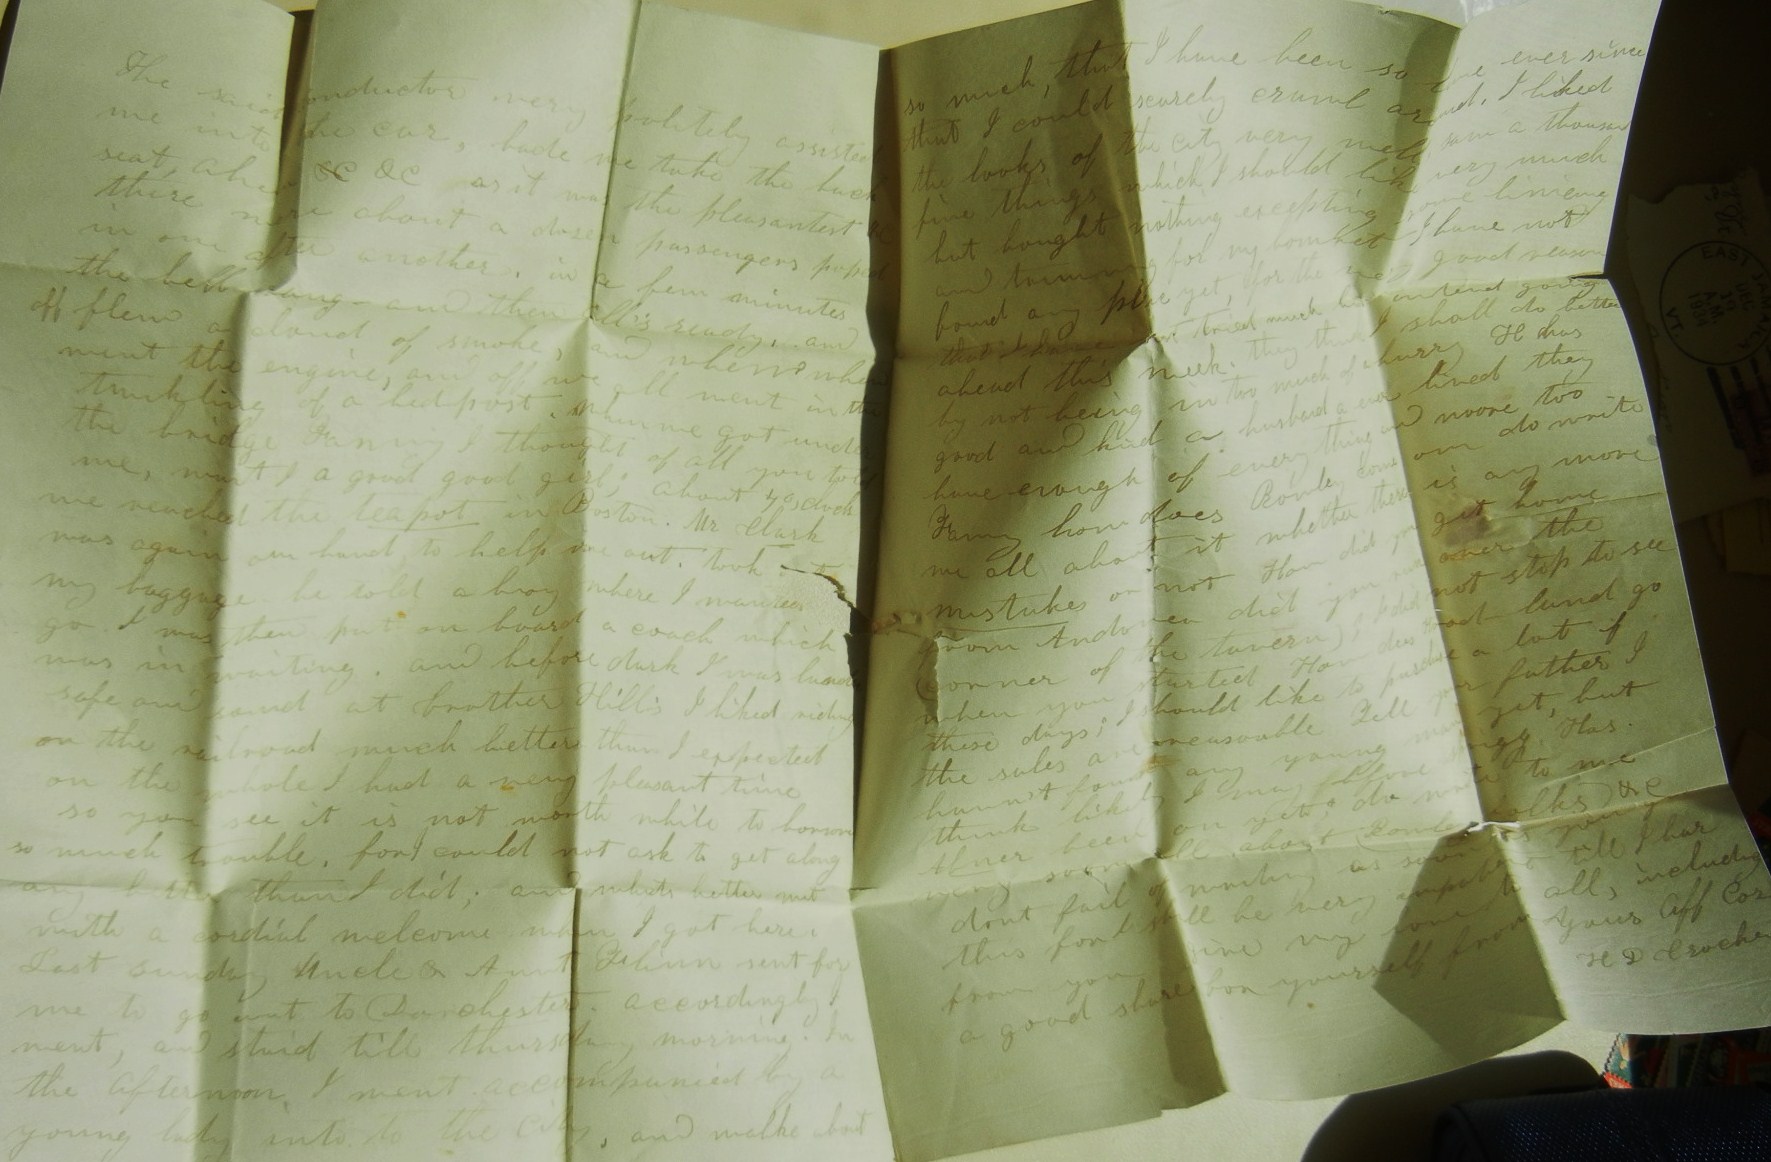 The said conductor very politely assisted
me into the car, bade me take the back
seat, when &C &C as it was the pleasantest &
there were about a dozen passengers popped
in one after another. in a few minutes
the bell rang and then all is ready, and
off flew a cloud of smoke, and when when
went the engine, and off we all went in the
twinkling of a bedpost. When we got under
the bridge Fanny I thought of all you told
me, want I a good good girl; about 4 oclock
we reached the teapot in Boston. Mr Clark
was again on hand, to help me out. took
my baggage he told a boy where I wanted
go. I was then put on board a coach which
was in waiting. and before dark I was
safe and sound at brother Hill's I liked riding
on the railroad much better than I expected
on the whole I had a very pleasant time
so you see it is not worth while to borrow
so much trouble, for I could not ask to get along
any better than I did; and whats better met
with a cordial welcome when I got here.
Last sunday Uncle & Aunt sent for
me to go out to Dorchester. accordingly I
went, and staid till thursday morning. In
the afternoon I went accompanied by a
young lady into to the City, and walke about
so much, that I have been so ever since
that I could scarcely crawl around. I liked
the looks of the city very well, saw a thousand
fine things which I should like very much
but bought nothing excepting some lineing
and trimming for my bonnet I have not
found any place yet, for the very good reason
that I have not tried much but intend going
ahead this week. they think I shall do better
by not being in too much of a hurry H has
good and kind a husband a ever lived they
have enough of every thing and more too
Fanny how does come on do write
me all about it whether there is any more
mistakes or not How did you get home
from Andover did you run over the
corner of the tavern), I did not stop to see
when you started How does Good land go
these days; I should like to purchase a lot if
the sales are reasonable Tell your father I
havnt found any young man yet, but
think likely I may
been on yet; do write to me
very soon all about folks &C
dont fail of writing as soon as you
this for I shall be very impatient till I har
from you give my love to all, including
a good share for yourself from Yours Aff Coz
H D Crocker
EAST
VT